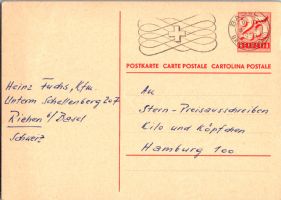 25
HELVETIA
POSTKARTE CARTE POSTALE CARTOLINA POSTALE
Heinz Fuchs, Kfm.
Unterm Schellenberg 207
Riehen b/Basel
Schweiz
An
Stern-Preisausschreiben
Kilo und Köpfchen
Hamburg 100